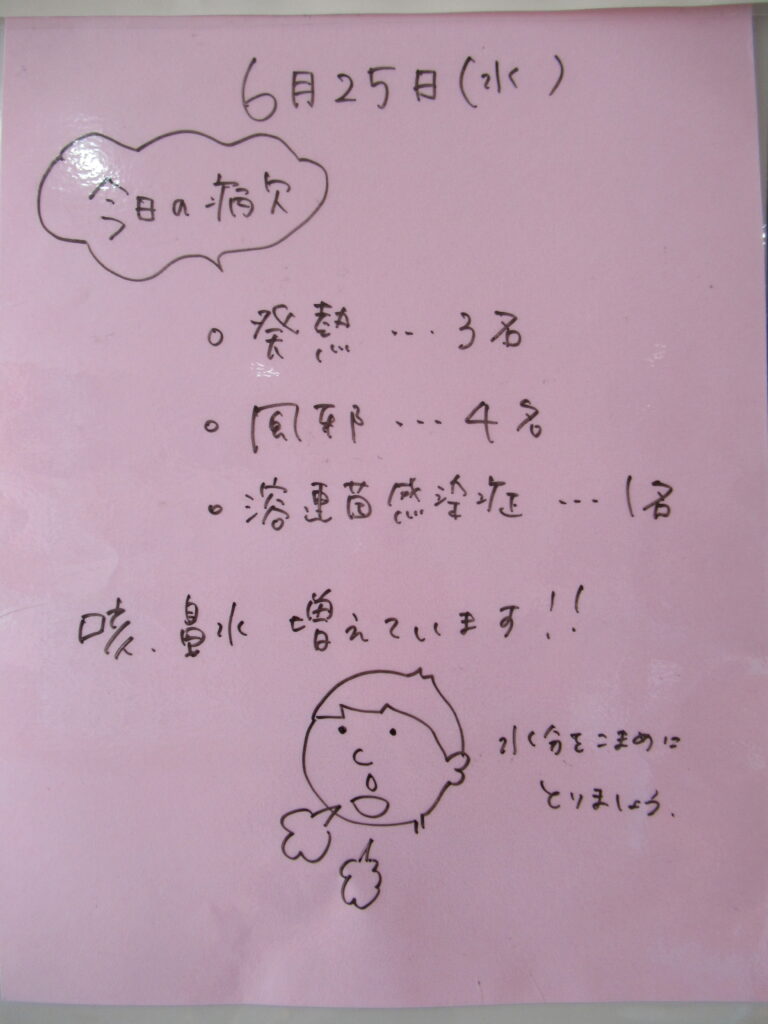 6月25日(水)
今日の病欠
○ 発熱 … 3名
○ 風邪 … 4名
○ 溶連菌感染症 … 1名
咳、鼻水 増えています!!
水分をこまめに
とりましょう。